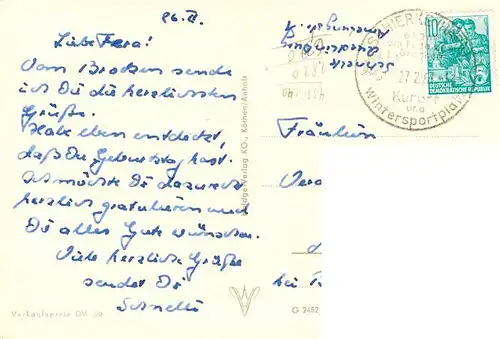 26. II.
Liebe Vera!
Vom Brocken sende
ich Dir die herzlichsten
Grüße.
Habe eben entdeckt,
daß Du Geburtstag hast.
Ich möchte Dir dazu recht
herzlich gratulieren und
Dir alles Gute wünschen.
Viele herzliche Grüße
sendet Dir
Verkaufspreis DM
Verlag KG., Köthen/Anhalt
G 2452
Quedlinburg
SCHIERKE
27.2.
Kurort
und
Wintersportplatz
10
DEUTSCHE
DEMOKRATISCHE REPUBLIK
Fräulein
Vera
bei